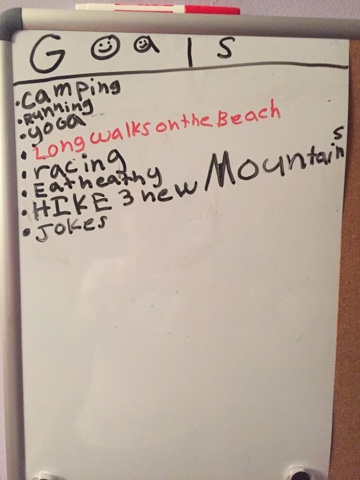 Goals
• Camping
• Running
• YOGA
• Long walks on the Beach
• racing
• Eat heathy
• HIKE 3 new Mountains
• Jokes